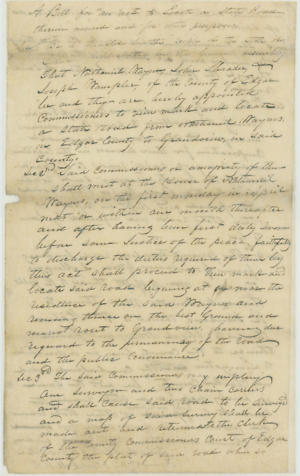 A Bill for "an act to Locate a State Road
therein named and for other purposes
That Nathaniel Wayne, John Shrader,
Joseph Wampler, of the County of Edgar
be and they are hereby appointed
Commissioners to view mark and locate
a State road from Nathaniel Waynes,
in Edgar County to Grandview, in said
County.
Sec 2nd Said Commissioners or a majority of them
shall meet at the House of Nathaniel
Waynes, on the first monday in april
next or within one month thereafter
and after having been first duly sworn
before some Justice of the peace, faithfully
to discharge the duties required of them by
this act shall proceed to view mark and
locate said road begining at or near the
residence of the said Waynes and
running thence on the best Ground and
nearest rout to Grandview, having due
reguard to the permanency of the road
and the public convenience.
Sec 3rd The said Commissioners may employ
one Surveyor and two Chain Carriers
and shall Cause said road to be surveyed
and a map of said survey shall be
made out and returned to the Clerk
of the County Commissioners Court of Edgar
County the plat of said road when so